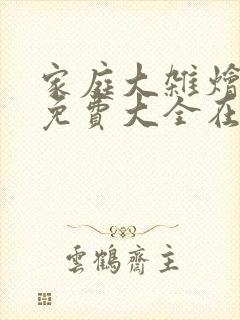 家庭大雑燴
免費大全在
雲鶴齋主